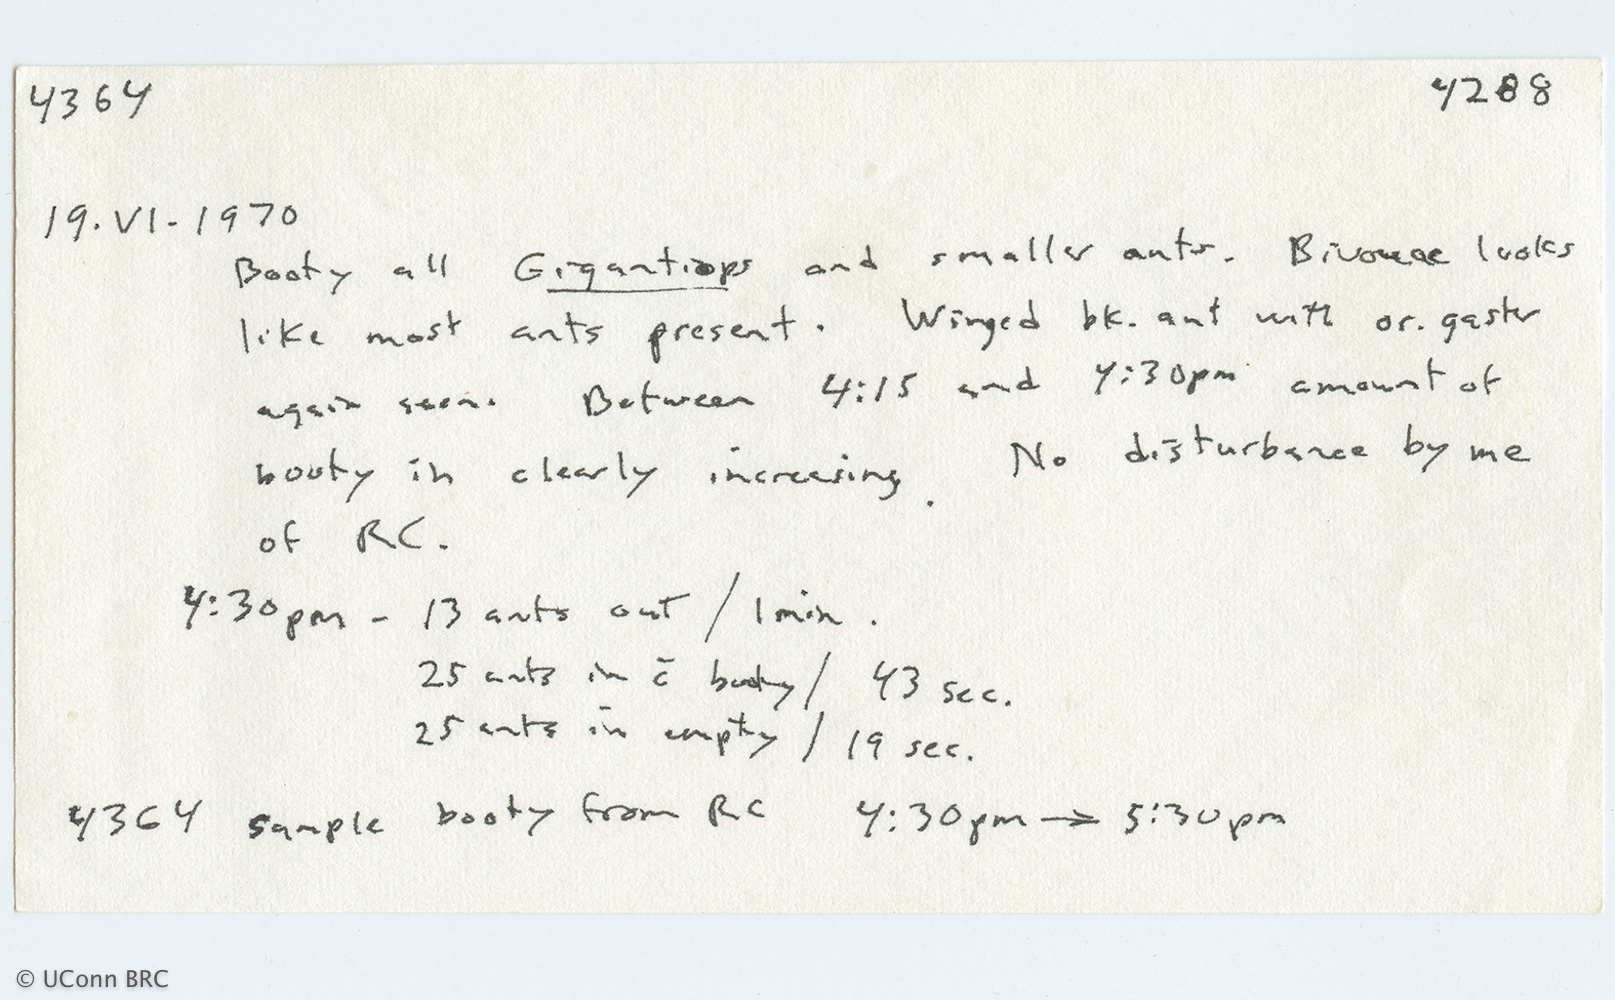 4364 4288
19.VI-1970
Booty all Gigantiops and smaller ants. Bivouac looks
like most ants present. Winged bk. ant with or. gaster
again seen. Between 4:15 and 4:30pm amount of
booty in clearly increasing. No disturbance by me
of RC.
4:30pm - 13 ants out / 1 min.
25 ants in c̄ booty / 43 sec.
25 ants in empty / 19 sec.
4364 sample booty from RC 4:30pm → 5:30pm
© UConn BRC